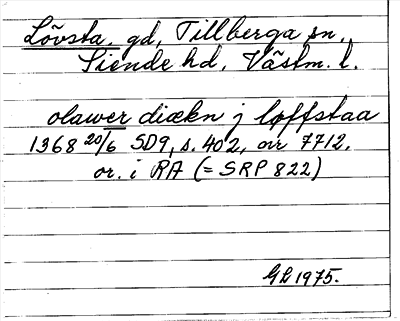 Lövsta, gd, Tillberga sn.,
Siende hd, Västm. l.
olawer diækn j løffstaa
1368 20/6 SD9, s. 402, nr 7712.
or. i RA (= SRP 822)
GL 1975.